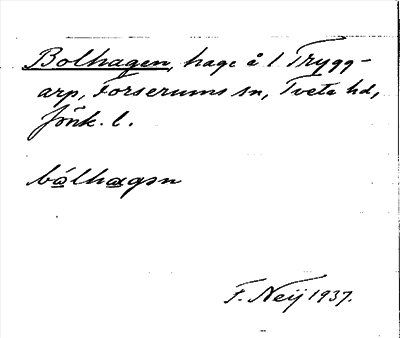 Bolhagen, hage å 1 Trygg-
arp, Forserums sn, Tveta hd,
Jönk. l.
bólhagən
F. Neij 1937.